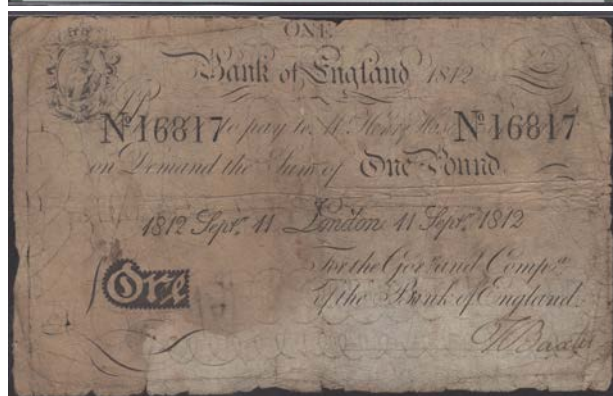 ONE
Bank of England 1812
I Promise to pay to Mr. Henry Hase
Nº 16817 Nº 16817
on Demand the Sum of One Pound
1812 Sept. 11 London 11 Sept. 1812
For the Govr. and Compa.
of the Bank of England.
One